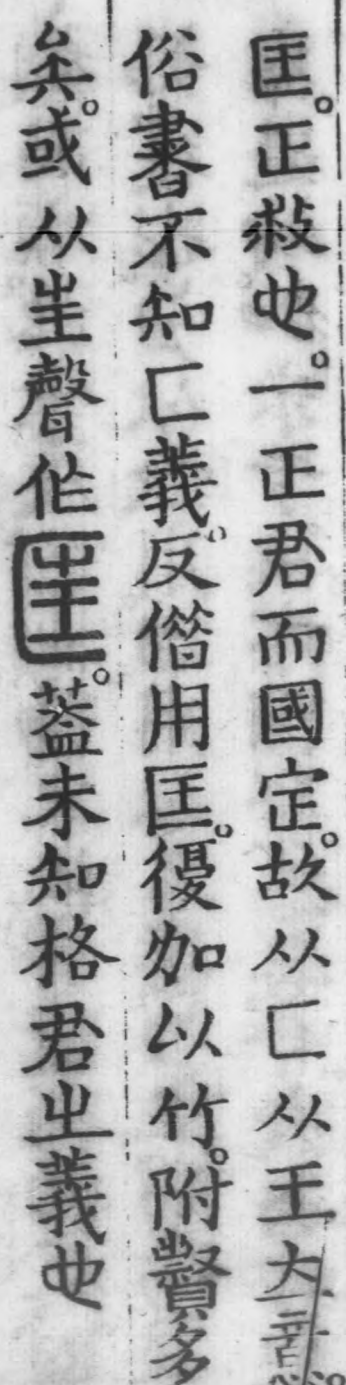 匡。正救也。一正君而國定。故从匚从王大意。
俗書不知匚義。反借用匡。復加以竹。附贅多
矣。或从㞷聲作𠥰。蓋未知格君㞢義也